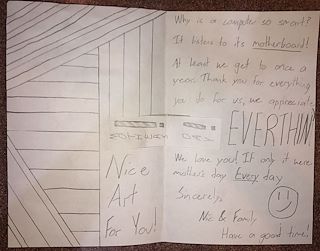 Why is a computer so smart?
It listens to its motherboard!
At least we get to once a
year. Thank you for everything
you do for us, we appreciate
EVERTHIN
Nice
Art
For You!
We love you! If only it were
mother's day Every day
Sincerely,
Nic & Family
Have a good time!